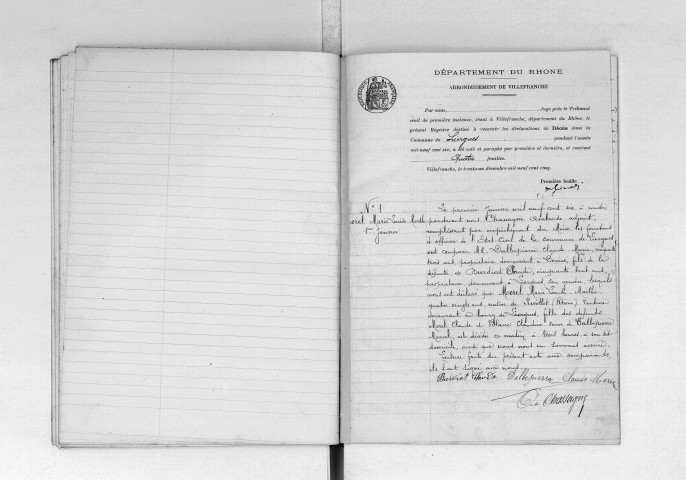 DÉPARTEMENT DU RHONE
ARRONDISSEMENT DE VILLEFRANCHE
Par nous, Juge près le Tribunal
civil de première instance, séant à Villefranche, département du Rhône, le
présent Registre destiné à recevoir les déclarations de Décès dans la
Commune de Liergues pendant l'année
mil neuf cent six, a été coté et paraphé par première et dernière, et contient
Quatre feuilles.
Villefranche, le trente un décembre mil neuf cent cinq.
Première feuille
N° 1
Morel Marie Louise
1er Janvier
Le premier Janvier mil neuf cent six à midi
pardevant nous Chassagne adjoint,
remplissant par empêchement du Maire les fonctions
d'officier de l'Etat Civil de la commune de Liergues
ont comparu MM. Dallepierre Claude Marie,
trois ans, propriétaire demeurant à fils de la
défunte, et Claude, cinquante huit ans,
propriétaire demeurant à Liergues, lesquels
nous ont déclaré que Morel Marie Louise
quatre vingts ans, native de Rivollet (Rhône)
demeurant au bourg de Liergues, fille des défunts
Morel Claude et Claudine veuve de Dallepierre
est décédée ce matin à trois heures, à son dit
domicile, ainsi que nous nous en sommes assuré.
Lecture faite du présent acte aux comparants,
ils l'ont signé avec nous.
Dallepierre Claude Marie
Chassagne